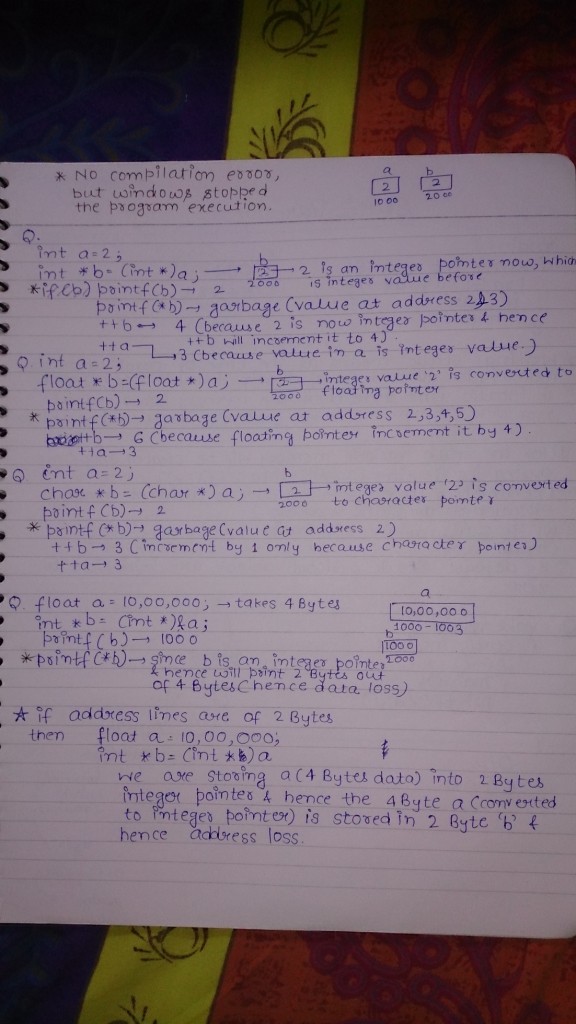 * No compilation error, 
but windows stopped
the program execution.
a b
2 2
1000 2000
Q.
int a=2;
int *b= (int *)a; → b 2 2000 → 2 is an integer pointer now, which
is integer value before
* if (b) printf(b) → 2
printf(*b) → garbage (value at address 2,3)
++b → 4 (because 2 is now integer pointer & hence
++b will increment it to 4)
++a → 3 (because value in a is integer value.)
Q int a=2;
float *b=(float *)a; → b 2 2000 → integer value '2' is converted to
floating pointer
printf(b) → 2
* printf(*b) → garbage (value at address 2,3,4,5)
++b → 6 (because floating pointer increment it by 4).
++a → 3
Q int a=2;
char *b= (char *)a; → b 2 2000 → integer value '2' is converted
to character pointer
printf(b) → 2
* printf(*b) → garbage (value at address 2)
++b → 3 (increment by 1 only because character pointer)
++a → 3
Q. float a = 10,00,000; → takes 4 Bytes
a
10,00,000
1000-1003
int *b= (int *)&a;
b
1000
2000
printf(b) → 1000
* printf(*b) → since b is an integer pointer
& hence will print 2 Bytes out
of 4 Bytes (hence data loss)
☆ if address lines are of 2 Bytes
then float a = 10,00,000;
int *b= (int *)a
we are storing a (4 Bytes data) into 2 Bytes
integer pointer & hence the 4 Byte a (converted
to integer pointer) is stored in 2 Byte 'b' &
hence address loss.